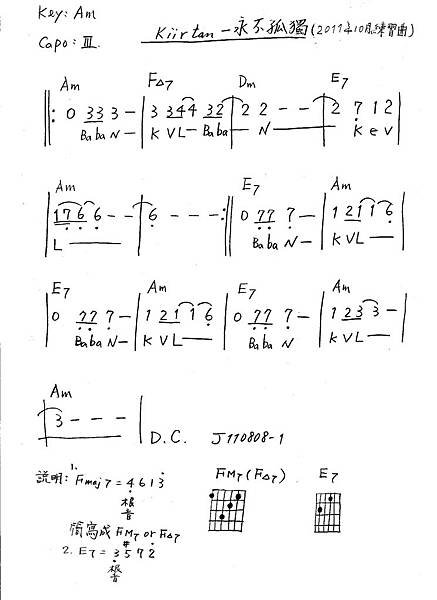 Key: Am
Capo: Ⅲ.
Kiirtan — 永不孤獨 (2011年10月練習曲)
Am F△7 Dm E7
‖: 0 3 3 3 - | 3 3 4 4 3 2 | 2 2 - - | 2 7 1 2
Ba ba N — K VL — Ba ba — N — K e v
Am E7 Am
| 1 7 6 6 - - | 6 - - - :‖ 0 7 7 7 - | 1 2 1 1 6 |
L — Ba ba N — K VL —
E7 Am E7 Am
0 7 7 7 - | 1 2 1 1 6 | 0 7 7 7 - | 1 2 3 3 - |
Ba ba N — K VL — Ba ba N — K VL —
Am
| 3 - - - | D.C. J110808-1
説明: 1. Fmaj7 = 4 6 1 3 FM7 (F△7) E7
根音
簡寫成 FM7 or F△7
2. E7 = 3 #5 7 2
根音